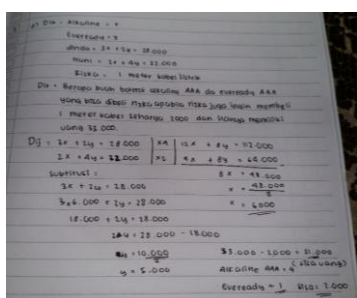 Dik = Alkaline = x
Eveready = y
dinda = 3x + 2y = 28.000
Huni = 2x + 4y = 32.000
Riska = 1 meter kabel listrik
Dit = Berapa buah baterai alkaline AAA da eveready AAA
yang bisa dibeli riska apabila riska juga ingin membeli
1 meter kabel seharga 2000 dan hanya memiliki
uang 33.000.
Dij = 3x + 2y = 28.000 | x4 | 12x + 8y = 112.000
2x + 4y = 32.000 | x2 | 4x + 8y = 64.000
Subtitusi = 8x = 48.000
3x + 2y = 28.000 x = 48.000
3x6.000 + 2y = 28.000 x = 6000
18.000 + 2y = 28.000
2y = 28.000 - 18.000
= 10.000 33.000 - 2.000 = 31.000
y = 5.000 Alkaline AAA = 4 (sisa uang)
Eveready = 1